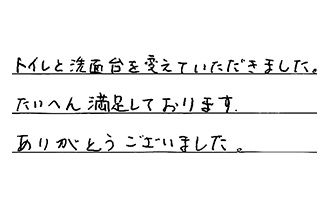 トイレと洗面台を変えていただきました。
たいへん満足しております.
ありがとうございました。